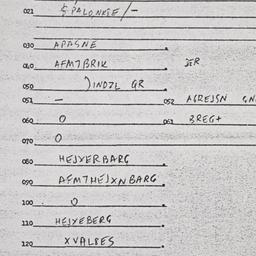 021 SPALONKIE/-
030 APASNE
040 AFMTBRIK JER
050 )INDZL GR
051 - 052 AGREJSN GN
060 0 061 BREG+
070 0
080 HEJXERBARG
090 AFMTHEJXNBARG
100 0
110 HEJXEBERG
120 XVALBES